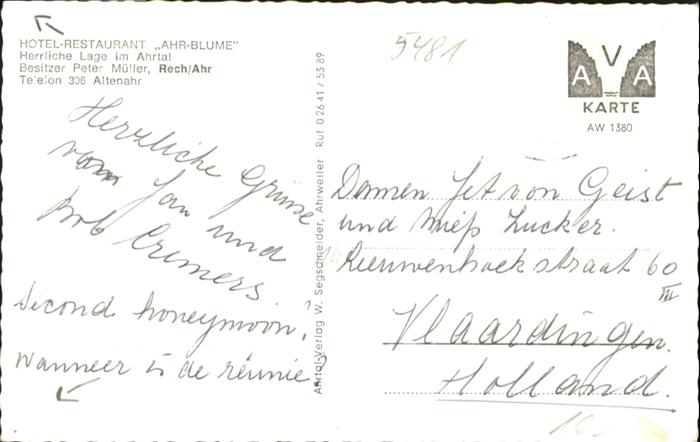 HOTEL-RESTAURANT „AHR-BLUME"
Herrliche Lage im Ahrtal
Besitzer Peter Müller, Rech/Ahr
Telefon 306 Altenahr
Herzliche Grüsse
vom Jan und
Bob Cremers
Second honeymoon?
Wanneer is de réunie?
Ahrtal-Verlag W. Segschneider, Ahrweiler Ruf 02641/5389
5481
AVA
KARTE
AW 1380
Damen Jet von Geist
und Miep Zucker.
Leeuwenhoekstraat 60
III
Vlaardingen.
Holland.